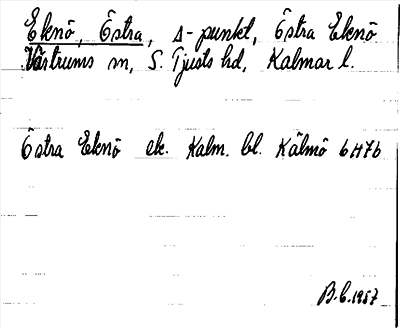 Eknö, Östra, Δ-punkt, Östra Eknö
Västrums sn, S. Tjusts hd, Kalmar l.
Östra Eknö ek. Kalm. bl. Kälmö 6H7b
B.C. 1957